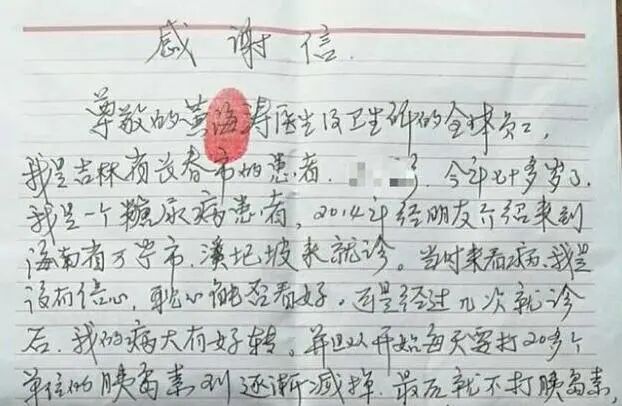 感谢信.
尊敬的黄海涛医生及卫生所的全体员工,
我是吉林省长春市的患者. 今年七十多岁了.
我是一个糖尿病患者, 2014年经朋友介绍来到
海南省万宁市. 坡来就诊。当时来看病、我是
没有信心, 耽心能否看好. 可是经过几次就诊
后. 我的病大有好转。并且从开始每天要打20多个
单位的胰岛素到逐渐减掉. 最后就不打胰岛素,